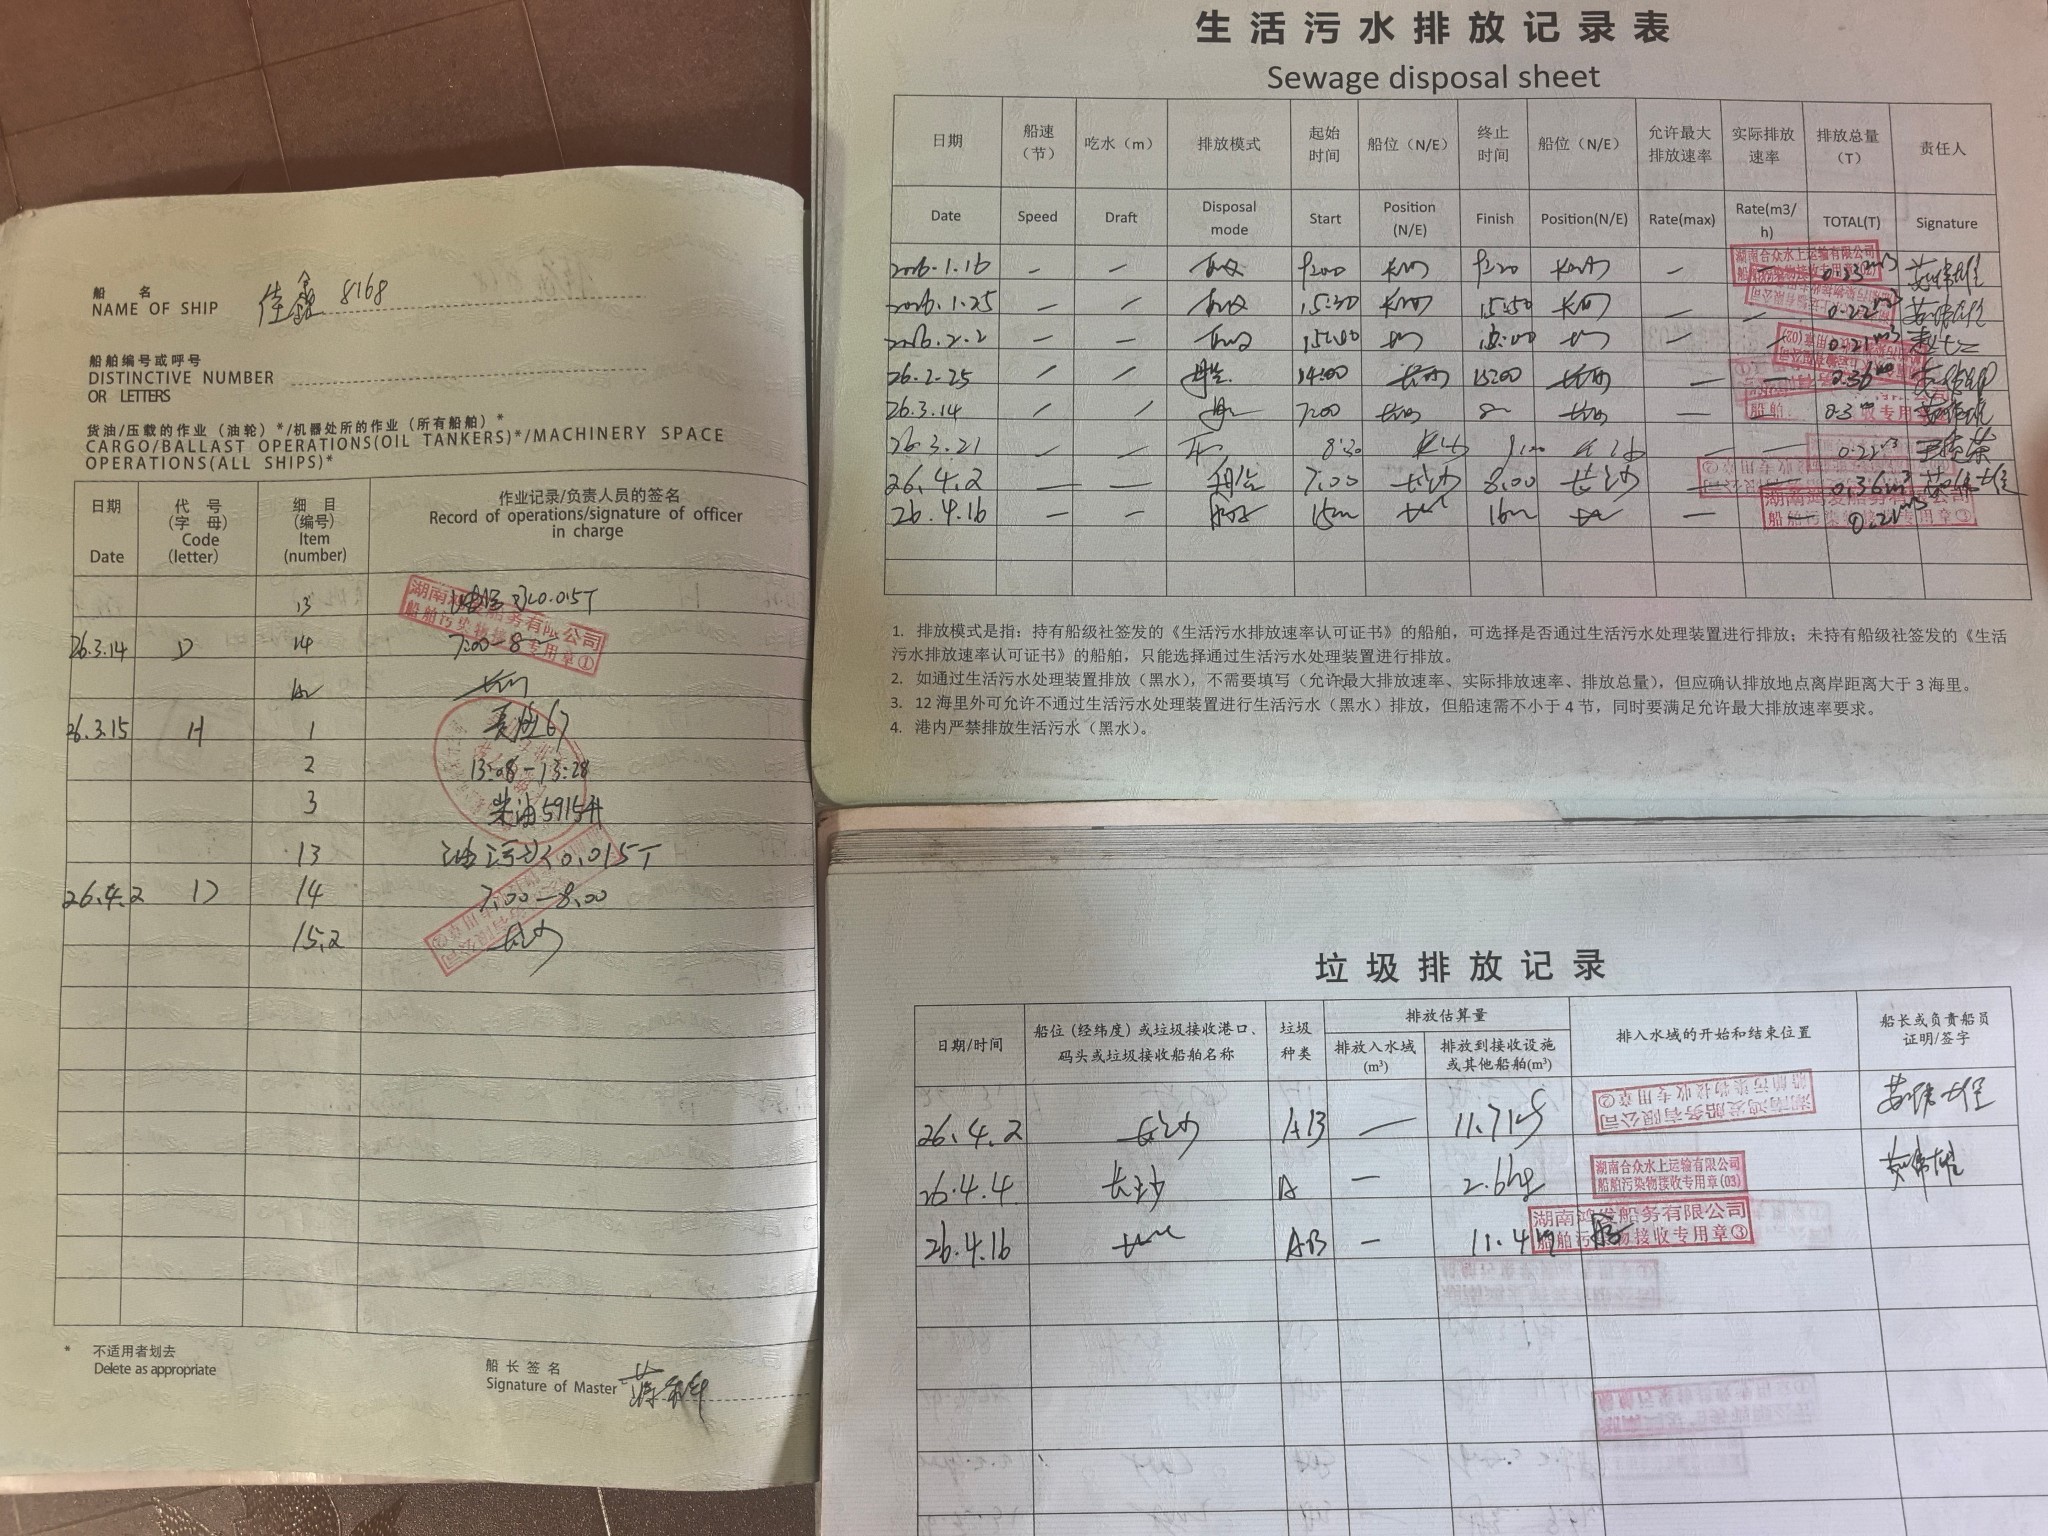 船 名
NAME OF SHIP 佳鑫 8168
船舶编号或呼号
DISTINCTIVE NUMBER
OR LETTERS
货油/压载的作业（油轮）*/机器处所的作业（所有船舶）*
CARGO/BALLAST OPERATIONS(OIL TANKERS)*/MACHINERY SPACE
OPERATIONS(ALL SHIPS)*
日期 Date 代号（字母） Code (letter) 细目（编号） Item (number) 作业记录/负责人员的签名 Record of operations/signature of officer in charge
13 0.015T
26.3.14 D 14 7:00-8
26.3.15 H 1
2 13:08-13:28
3 柴油5915升
13 油污水0.015T
26.4.2 D 14 7.00-8.00
15.2 长沙
* 不适用者划去
Delete as appropriate
船长签名
Signature of Master
生活污水排放记录表
Sewage disposal sheet
日期 船速（节） 吃水（m） 排放模式 起始时间 船位（N/E） 终止时间 船位（N/E） 允许最大排放速率 实际排放速率 排放总量（T） 责任人
Date Speed Draft Disposal mode Start Position (N/E) Finish Position(N/E) Rate(max) Rate(m3/h) TOTAL(T) Signature
2026.1.16 - - - 0.23m3
2026.1.25 - - 15:30 15:50 - - 0.22m3
2026.2.2 - - 15:00 - 0.21m3
26.2.25 14:00 15:00 - - 0.36
26.3.14 7:00 - 0.3
26.3.21 8:30 - 0.22m3
26.4.2 — — 船舶 7:00 长沙 8:00 长沙 0.36m3
26.4.16 - - - 0.21m3
湖南合众水上运输有限公司
1. 排放模式是指：持有船级社签发的《生活污水排放速率认可证书》的船舶，可选择是否通过生活污水处理装置进行排放；未持有船级社签发的《生活
污水排放速率认可证书》的船舶，只能选择通过生活污水处理装置进行排放。
2. 如通过生活污水处理装置排放（黑水），不需要填写（允许最大排放速率、实际排放速率、排放总量），但应确认排放地点离岸距离大于 3 海里。
3. 12 海里外可允许不通过生活污水处理装置进行生活污水（黑水）排放，但船速需不小于 4 节，同时要满足允许最大排放速率要求。
4. 港内严禁排放生活污水（黑水）。
垃圾排放记录
日期/时间 船位（经纬度）或垃圾接收港口、码头或垃圾接收船舶名称 垃圾种类 排放估算量 排放入水域(m³) 排放到接收设施或其他船舶(m³) 排入水域的开始和结束位置 船长或负责船员证明/签字
26.4.2 长沙 AB — 11.7kg
湖南鸿发船务有限公司
船舶污染物接收专用章②
26.4.4 长沙 A — 2.6kg
湖南合众水上运输有限公司
船舶污染物接收专用章(03)
26.4.16 AB — 11.4
湖南鸿发船务有限公司
船舶污染物接收专用章③